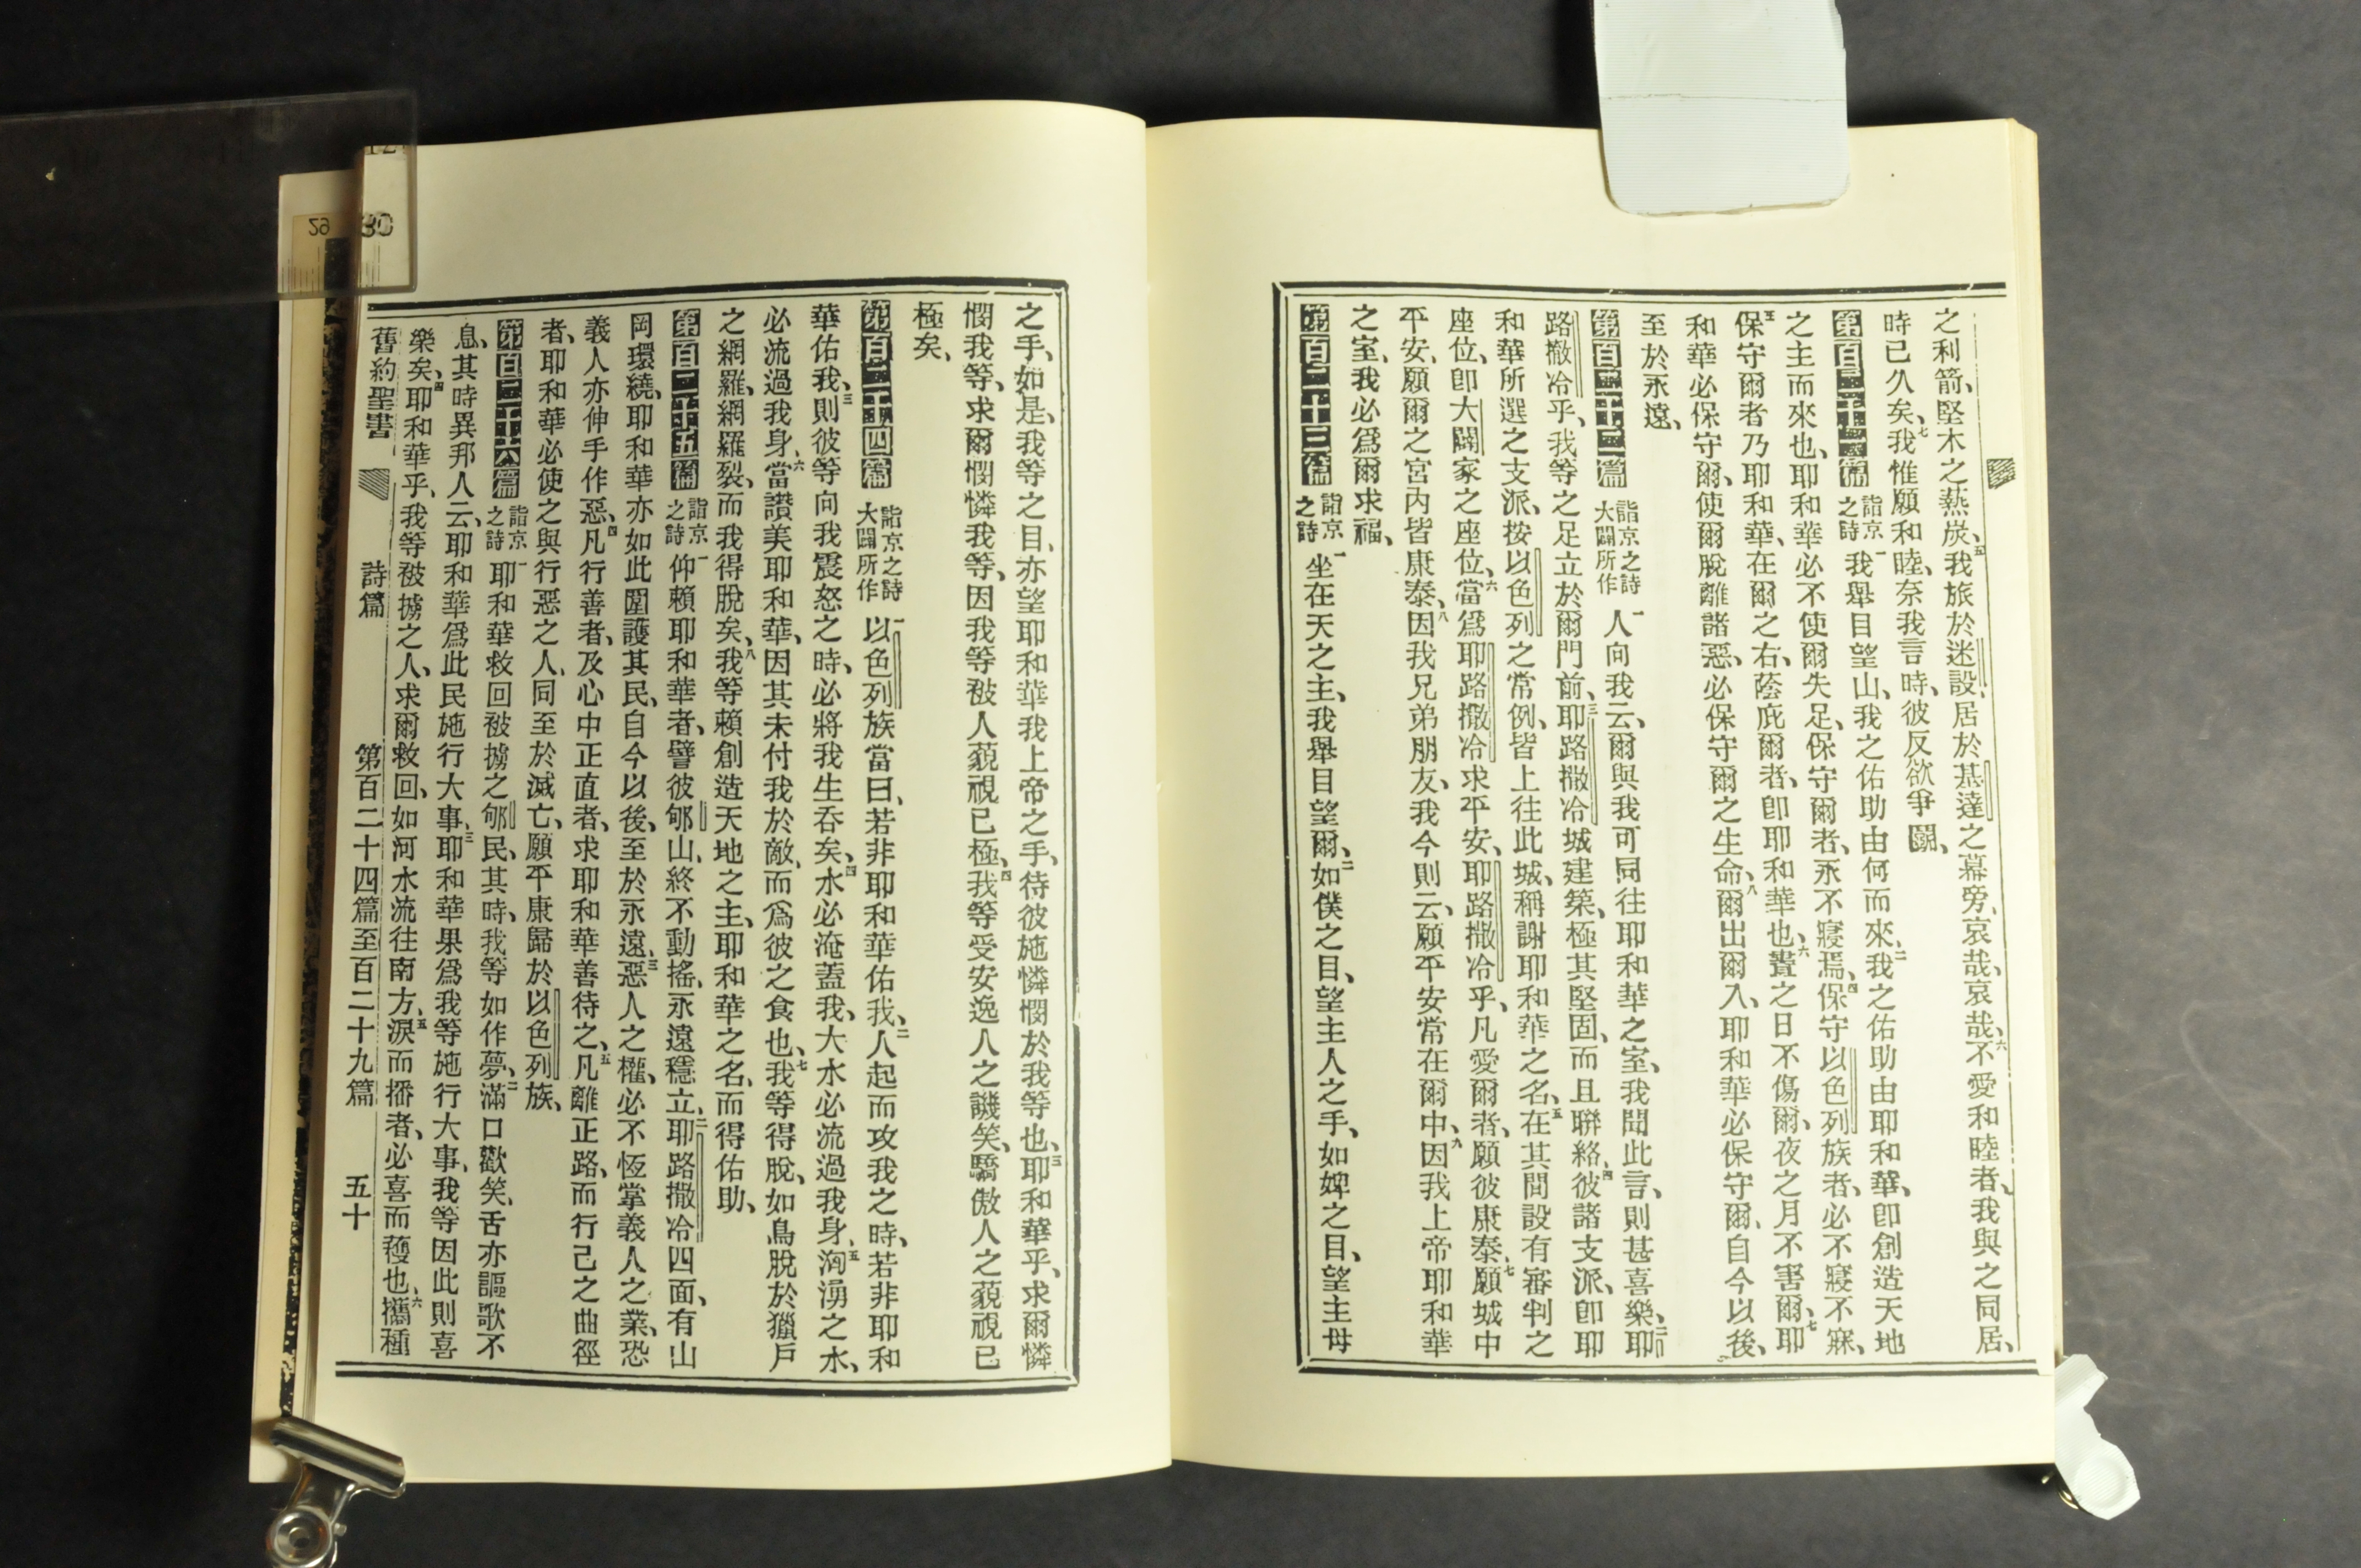 之利箭、堅木之熱炭、五我旅於迷設、居於基達之幕旁、哀哉、哀哉、六不愛和睦者、我與之同居、
時已久矣、七我惟願和睦、奈我言時、彼反欲爭鬭、
第百二十一篇 詣京之詩 一我舉目望山、我之佑助由何而來、二我之佑助由耶和華、卽創造天地
之主而來也、耶和華必不使爾失足、保守爾者、永不寢焉、四保守以色列族者、必不寢不寐、
五保守爾者乃耶和華、在爾之右、蔭庇爾者、卽耶和華也、六晝之日不傷爾、夜之月不害爾、七耶
和華必保守爾、使爾脫離諸惡、必保守爾之生命、八爾出爾入、耶和華必保守爾、自今以後、
至於永遠、
第百二十二篇 詣京之詩大闢所作 一人向我云、爾與我可同往耶和華之室、我聞此言、則甚喜樂、二耶
路撒冷乎、我等之足立於爾門前、三耶路撒冷城建築、極其堅固、而且聯絡、四彼諸支派、卽耶
和華所選之支派、按以色列之常例、皆上往此城、稱謝耶和華之名、五在其間設有審判之
座位、卽大闢家之座位、六當爲耶路撒冷求平安、耶路撒冷乎、凡愛爾者、願彼康泰、七願城中
平安、願爾之宮內皆康泰、八因我兄弟朋友、我今則云、願平安常在爾中、九因我上帝耶和華
之室、我必爲爾求福、
第百二十三篇 詣京之詩 一坐在天之主、我舉目望爾、二如僕之目、望主人之手、如婢之目、望主母
之手、如是、我等之目、亦望耶和華我上帝之手、待彼施憐憫於我等也、三耶和華乎、求爾憐
憫我等、求爾憫憐我等、因我等被人藐視已極、四我等受安逸人之譏笑、驕傲人之藐視已
極矣、
第百二十四篇 詣京之詩大闢所作 一以色列族當曰、若非耶和華佑我、二人起而攻我之時、若非耶和
華佑我、三則彼等向我震怒之時、必將我生吞矣、四水必淹蓋我、大水必流過我身、五洶湧之水、
必流過我身、六當讚美耶和華、因其未付我於敵、而爲彼之食也、七我等得脫、如鳥脫於獵戶
之網羅、網羅裂、而我得脫矣、八我等賴創造天地之主、耶和華之名、而得佑助、
第百二十五篇 詣京之詩 一仰賴耶和華者、譬彼郇山、終不動搖、永遠穩立、二耶路撒冷四面、有山
岡環繞、耶和華亦如此圍護其民、自今以後、至於永遠、三惡人之權、必不恆掌義人之業、恐
義人亦伸手作惡、四凡行善者、及心中正直者、求耶和華善待之、五凡離正路、而行己之曲徑
者、耶和華必使之與行惡之人、同至於滅亡、願平康歸於以色列族、
第百二十六篇 詣京之詩 一耶和華救回被擄之郇民、其時、我等如作夢、二滿口歡笑、舌亦謳歌不
息、其時異邦人云、耶和華爲此民施行大事、三耶和華果爲我等施行大事、我等因此則喜
樂矣、四耶和華乎、我等被擄之人、求爾救回、如河水流往南方、五淚而播者、必喜而穫也、六攜種
舊約聖書 詩篇 第百二十四篇至百二十九篇 五十
29
30